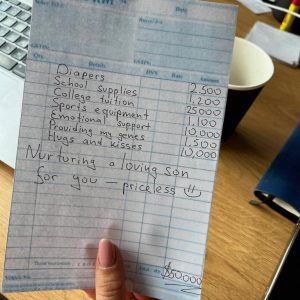 Date
Qty.
Details
HSN
Rate
Amount
Diapers 2,500
School supplies 1,200
College tuition 25000
Sports equipment 1,100
Emotional support 10,000
Providing my genes 1,500
Hugs and kisses 10,000
Nurturing a loving son
for you — priceless
$50000